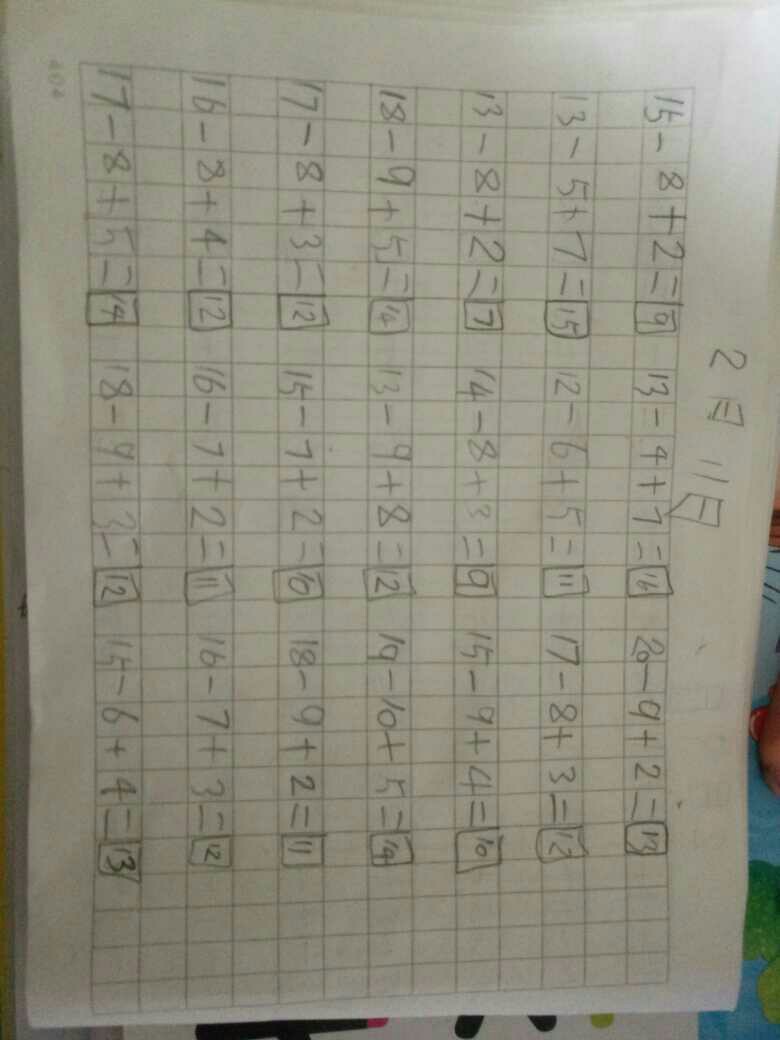 2月11日
15-8+2=9 13-4+7=16 20-9+2=13
13-5+7=15 12-6+5=11 17-8+3=12
13-8+2=7 14-8+3=9 15-9+4=10
18-9+5=14 13-9+8=12 19-10+5=14
17-8+3=12 15-7+2=10 18-9+2=11
16-8+4=12 16-7+2=11 16-7+3=12
17-8+5=14 18-9+3=12 15-6+4=13